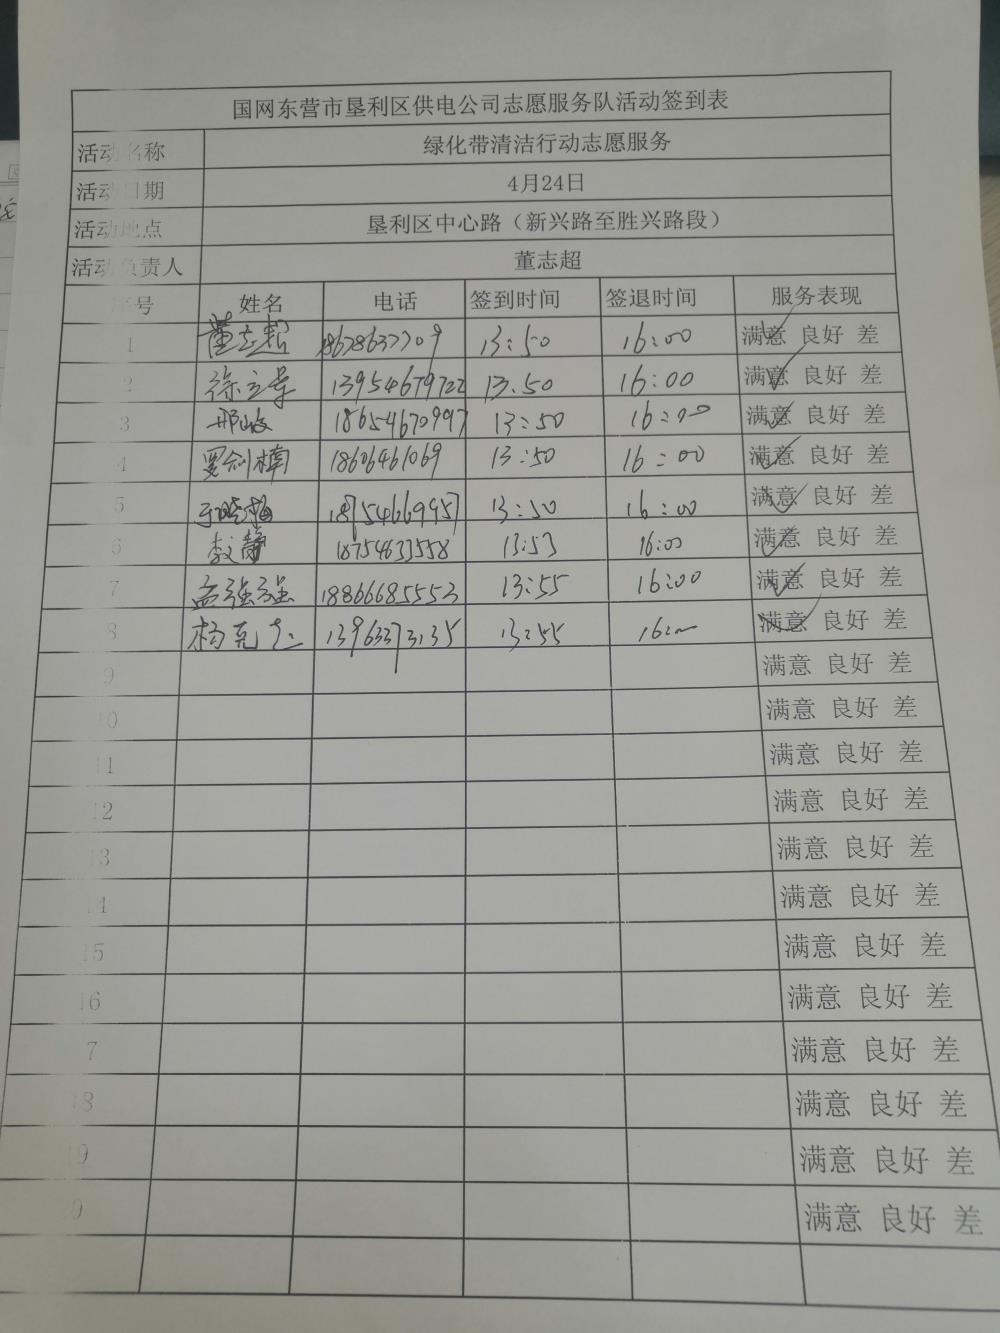 国网东营市垦利区供电公司志愿服务队活动签到表
活动名称 绿化带清洁行动志愿服务
活动日期 4月24日
活动地点 垦利区中心路（新兴路至胜兴路段）
活动负责人 董志超
序号 姓名 电话 签到时间 签退时间 服务表现
1 董志超 18678637709 13:50 16:00 满意 良好 差
2 13954679722 13:50 16:00 满意 良好 差
3 邢峻 18654670997 13:50 16:00 满意 良好 差
4 罗剑楠 18606461069 13:50 16:00 满意 良好 差
5 于晓梅 18754669957 13:50 16:00 满意 良好 差
6 李静 18754633558 13:53 16:00 满意 良好 差
7 孟强强 18866685553 13:55 16:00 满意 良好 差
8 杨克 13963373135 13:55 16:00 满意 良好 差
9 满意 良好 差
10 满意 良好 差
11 满意 良好 差
12 满意 良好 差
13 满意 良好 差
14 满意 良好 差
15 满意 良好 差
16 满意 良好 差
7 满意 良好 差
18 满意 良好 差
19 满意 良好 差
0 满意 良好 差